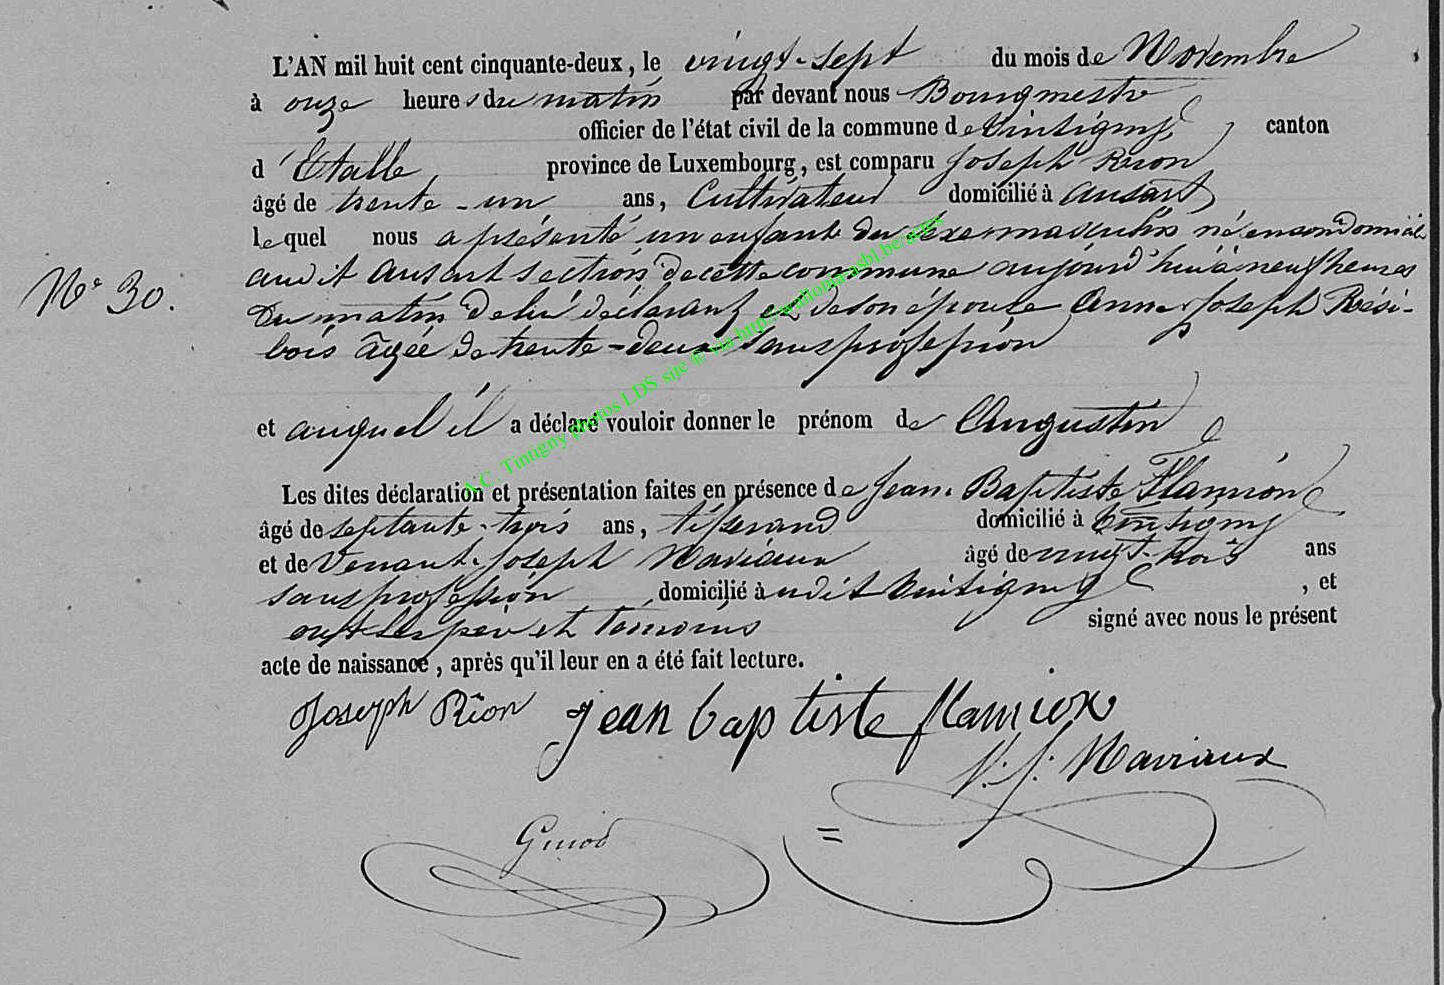 L'AN mil huit cent cinquante-deux, le vingt-sept du mois de Novembre
à onze heures du matin par devant nous Bourgmestre
officier de l'état civil de la commune de Tintigny, canton
d'Etalle province de Luxembourg, est comparu Joseph Rion
âgé de trente-un ans, Cultivateur domicilié à Ansart
lequel nous a présenté un enfant du sexe masculin né en son domicile
audit Ansart section de cette commune aujourd'hui à neuf heures
N° 30.
Du matin de lui déclarant et de son épouse Anne Joseph Rési-
bois âgée de trente-deux sans profession
et auquel il a déclaré vouloir donner le prénom de Augustin
Les dites déclaration et présentation faites en présence de Jean Baptiste Flamion
âgé de septante-trois ans, tisserand domicilié à Tintigny
et de Venant Joseph Maviaux âgé de vingt-trois ans
sans profession domicilié à udit Tintigny, et
ont les père et témoins signé avec nous le présent
acte de naissance, après qu'il leur en a été fait lecture.
Joseph Rion jean baptiste flamion
V. J. Maviaux
=
A.C. Tintigny photos LDS site © via http://wallonia-asbl.be/actes